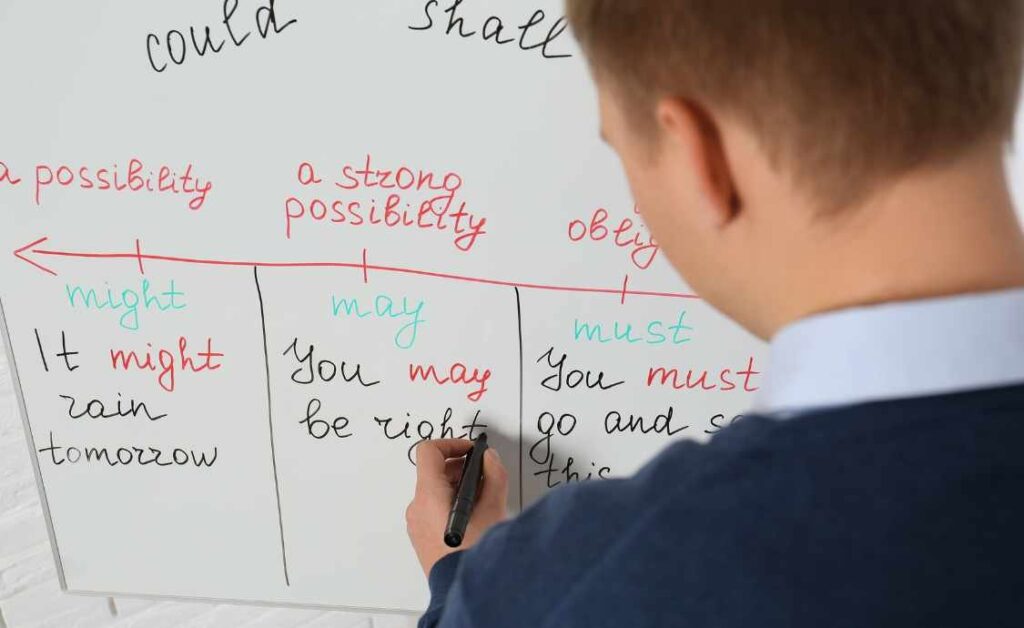 could shall
a possibility
a strong
possibility
might
may
must
It might
rain
tomorrow
You may
be right
You must
go and
this